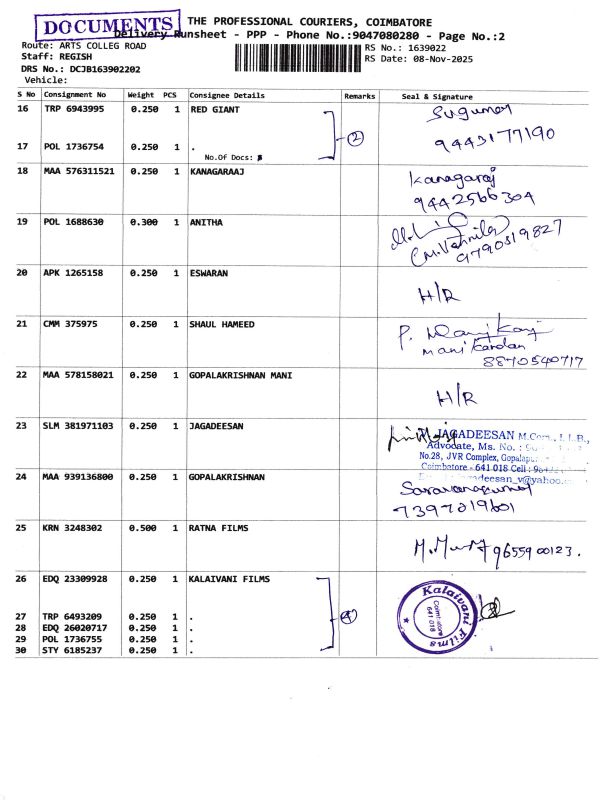 DOCUMENTS
THE PROFESSIONAL COURIERS, COIMBATORE
Delivery Runsheet - PPP - Phone No.:9047080280 - Page No.:2
Route: ARTS COLLEG ROAD
RS No.: 1639022
Staff: REGISH
RS Date: 08-Nov-2025
DRS No.: DCJB163902202
Vehicle:
S No Consignment No Weight PCS Consignee Details Remarks Seal & Signature
16 TRP 6943995 0.250 1 RED GIANT Sugumar
2 9443177190
17 POL 1736754 0.250 1 .
No.Of Docs:
18 MAA 576311521 0.250 1 KANAGARAAJ Kanagaraj
9442566304
19 POL 1688630 0.300 1 ANITHA
9790319827
20 APK 1265158 0.250 1 ESWARAN
H/R
21 CMM 375975 0.250 1 SHAUL HAMEED P.
Manikandan
8870540717
22 MAA 578158021 0.250 1 GOPALAKRISHNAN MANI
H/R
23 SLM 381971103 0.250 1 JAGADEESAN
JAGADEESAN M.Com., L.L.B.,
Advocate, Ms. No. :
No.28, JVR Complex,
Coimbatore - 641 018 Cell :
24 MAA 939136800 0.250 1 GOPALAKRISHNAN
adeesan_v@yahoo.
7397019601
25 KRN 3248302 0.500 1 RATNA FILMS
9655900123.
26 EDQ 23309928 0.250 1 KALAIVANI FILMS
Kalaivani Films
Coimbatore
641 018
27 TRP 6493209 0.250 1 . 4
28 EDQ 26020717 0.250 1 .
29 POL 1736755 0.250 1 .
30 STY 6185237 0.250 1 .